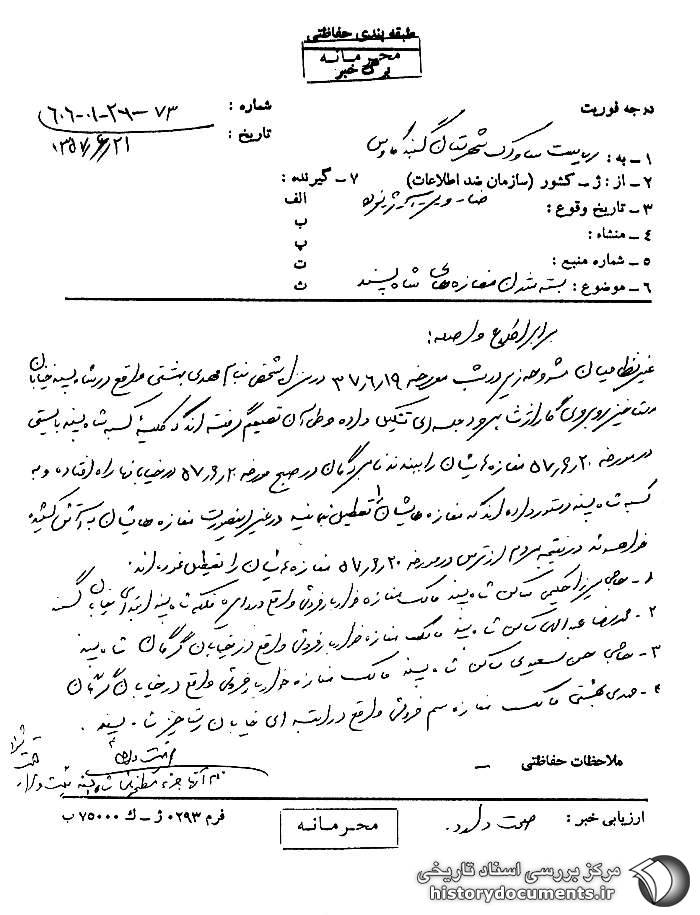 طبقه بندی حفاظتی
محرمانه
برگ خبر
درجه فوریت
شماره : ۷۳-۲۹-۰۱-۶۰۶
تاریخ : ۱۳۵۷/۶/۲۱
۱ - به : ریاست ساواک شهرستان گنبد کاوس
۲ - از : ژ - کشور (سازمان ضد اطلاعات)
۳ - تاریخ وقوع :
۴ - منشاء :
۵ - شماره منبع :
۶ - موضوع : بسته شدن مغازه های شاه پسند
۷ - گیرنده :
الف
ب
پ
ت
ث
برابر اطلاع واصله :
غیرنظامیان مشروحه زیر در شب مورخه ۳۷٫۶٫۱۹ در منزل شخصی بنام مهدی بهشتی واقع در شاه پسند خیابان
روبروی گاراژ جلسه ای تشکیل داده و طی آن تصمیم گرفته اند که کلیه کسبه شاه پسند بایستی
در مورخه ۵۷٫۶٫۲۰ مغازه هایشان را ببندند نامبردگان در صبح مورخه ۵۷٫۶٫۲۰ در خیابانها راه افتاده و به
کسبه شاه پسند دستور داده اند که مغازه هایشان را تعطیل نمایند در غیر اینصورت مغازه هایشان به آتش کشیده
خواهد شد در نتیجه مردم از ترس در مورخه ۵۷٫۶٫۲۰ مغازه هایشان را تعطیل نموده اند.
۱ - حاجی ساکن شاه پسند مالک مغازه خواربار فروشی واقع در فلکه شاه پسند ابتدای خیابان گنبد
۲ - محمدرضا عبدالهی ساکن شاه پسند مالک مغازه خواربار فروشی واقع در خیابان گرگان شاه پسند
۳ - حاجی حسن سعیدی ساکن شاه پسند مالک مغازه خواربار فروشی واقع در خیابان گرگان
۴ - مهدی بهشتی مالک مغازه سم فروشی واقع در ابتدای خیابان
ملاحظات حفاظتی -
ارزیابی خبر : صحت دارد.
محرمانه
فرم ۰۲۹۳ ژ - ک ۷۵۰۰۰ ب
مرکز بررسی اسناد تاریخی
historydocuments.ir